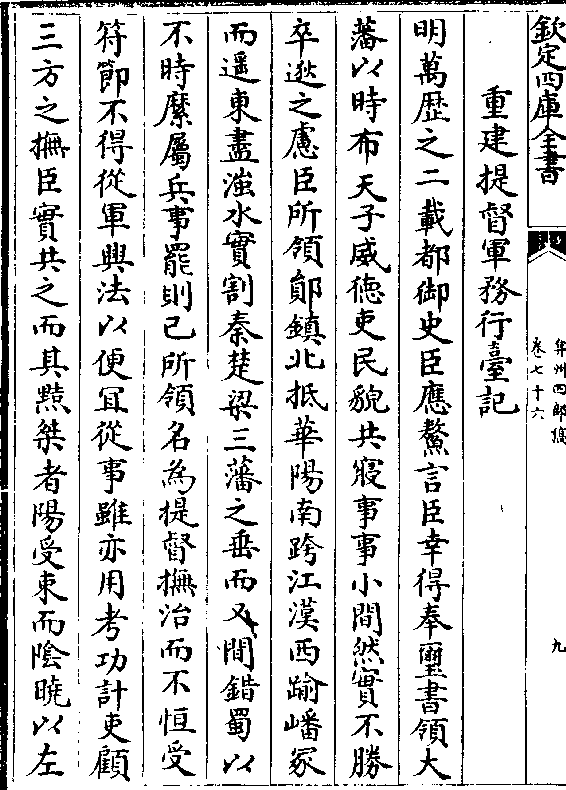 欽定四庫全書
弇州四部稿
卷七十六
九
重建提督軍務行臺記
明萬歴之二載都御史臣應鰲言臣幸得奉璽書領大
藩以時布天子威德吏民貌共寢事事小間然實不勝
卒遬之慮臣所領鄖鎮北抵華陽南跨江漢西踰嶓冢
而遥東盡滍水實割秦楚梁三藩之垂而又間錯蜀以
不時縻屬兵事罷則已所領名為提督撫治而不恒受
符節不得從軍興法以便宜從事雖亦用考功計吏顧
三方之撫臣實共之而其㸃桀者陽受束而陰曉以左